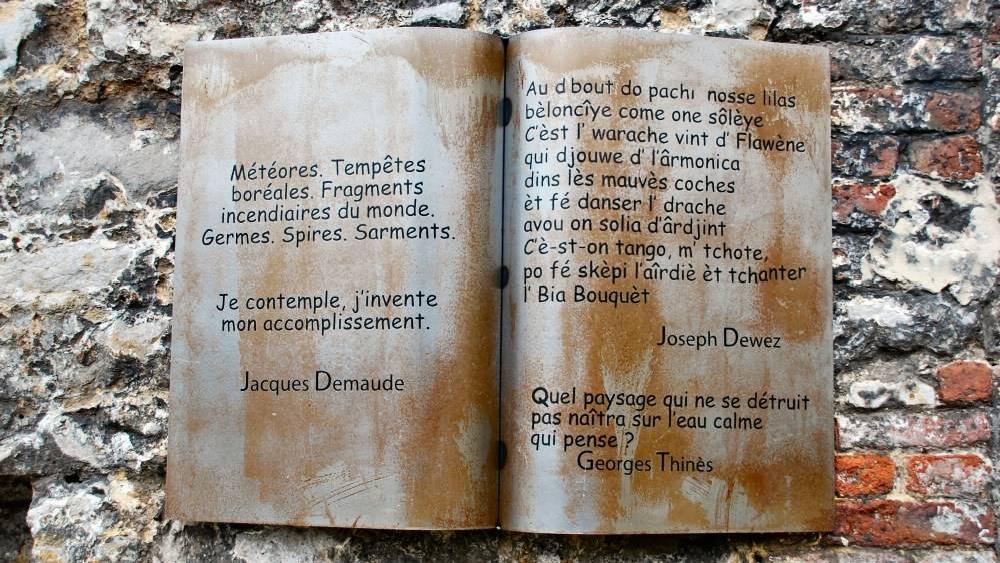 Météores. Tempêtes
boréales. Fragments
incendiaires du monde.
Germes. Spires. Sarments.
Je contemple, j'invente
mon accomplissement.
Jacques Demaude
Au d'bout do pachi nosse lilas
bèloncîye come one sôlèye
C'èst l' warache vint d' Flawène
qui djouwe d' l'ârmonica
dins lès mauvès coches
èt fé danser l' drache
avou on solia d'ârdjint
C'è-st-on tango, m' tchote,
po fé skèpi l'aîrdiè èt tchanter
l' Bia Bouquèt
Joseph Dewez
Quel paysage qui ne se détruit
pas naîtra sur l'eau calme
qui pense ?
Georges Thinès